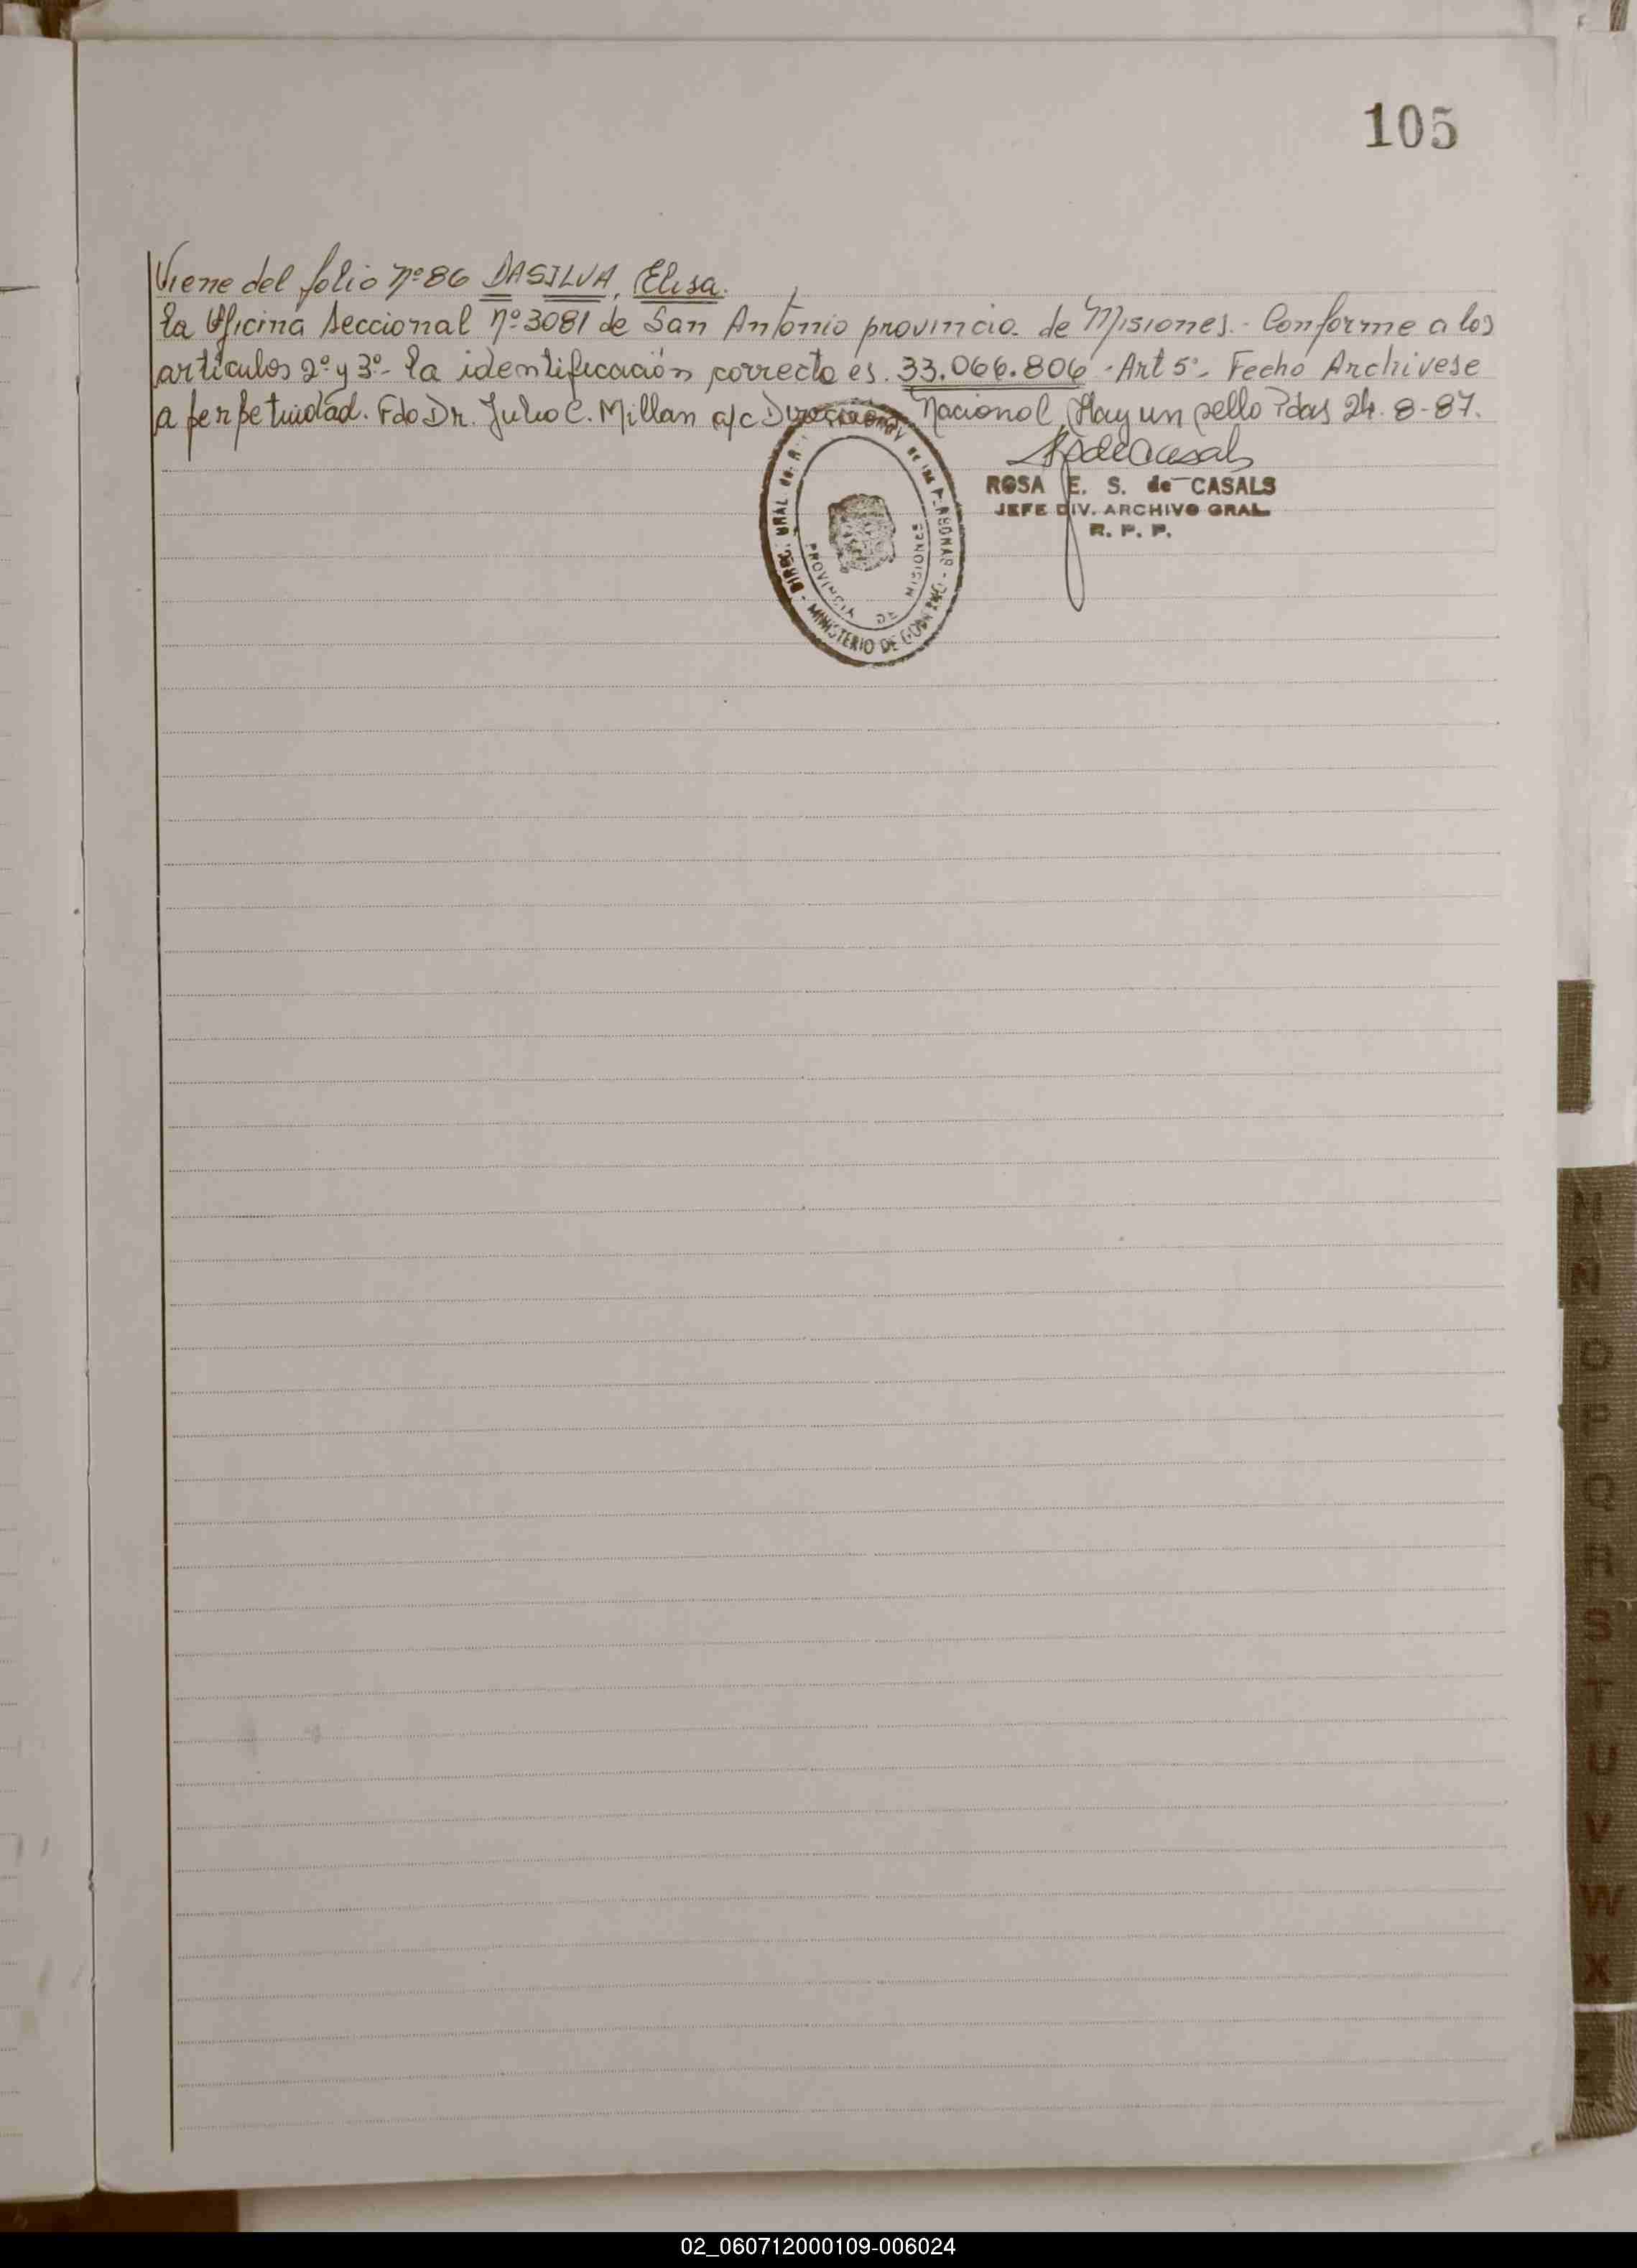 105
Viene del folio nº 86 DASILVA, Elisa.
la Oficina Seccional nº 3081 de San Antonio provincia de Misiones.- Conforme a los
artículos 2º y 3º- la identificación correcta es. 33.066.806 - Art 5º- Fecho Archivese
a perpetuidad. Fdo Dr. Julio C. Millan a/c Direccion Nacional, Hay un sello Pdas 24-8-87.
ROSA E. S. de CASALS
JEFE DIV. ARCHIVO GRAL.
R. P. P.
DIREC. GRAL. de las PERSONAS - MINISTERIO DE GOBIERNO -
PROVINCIA DE MISIONES
M
N
O
P
Q
R
S
T
U
V
W
X
02_060712000109-006024